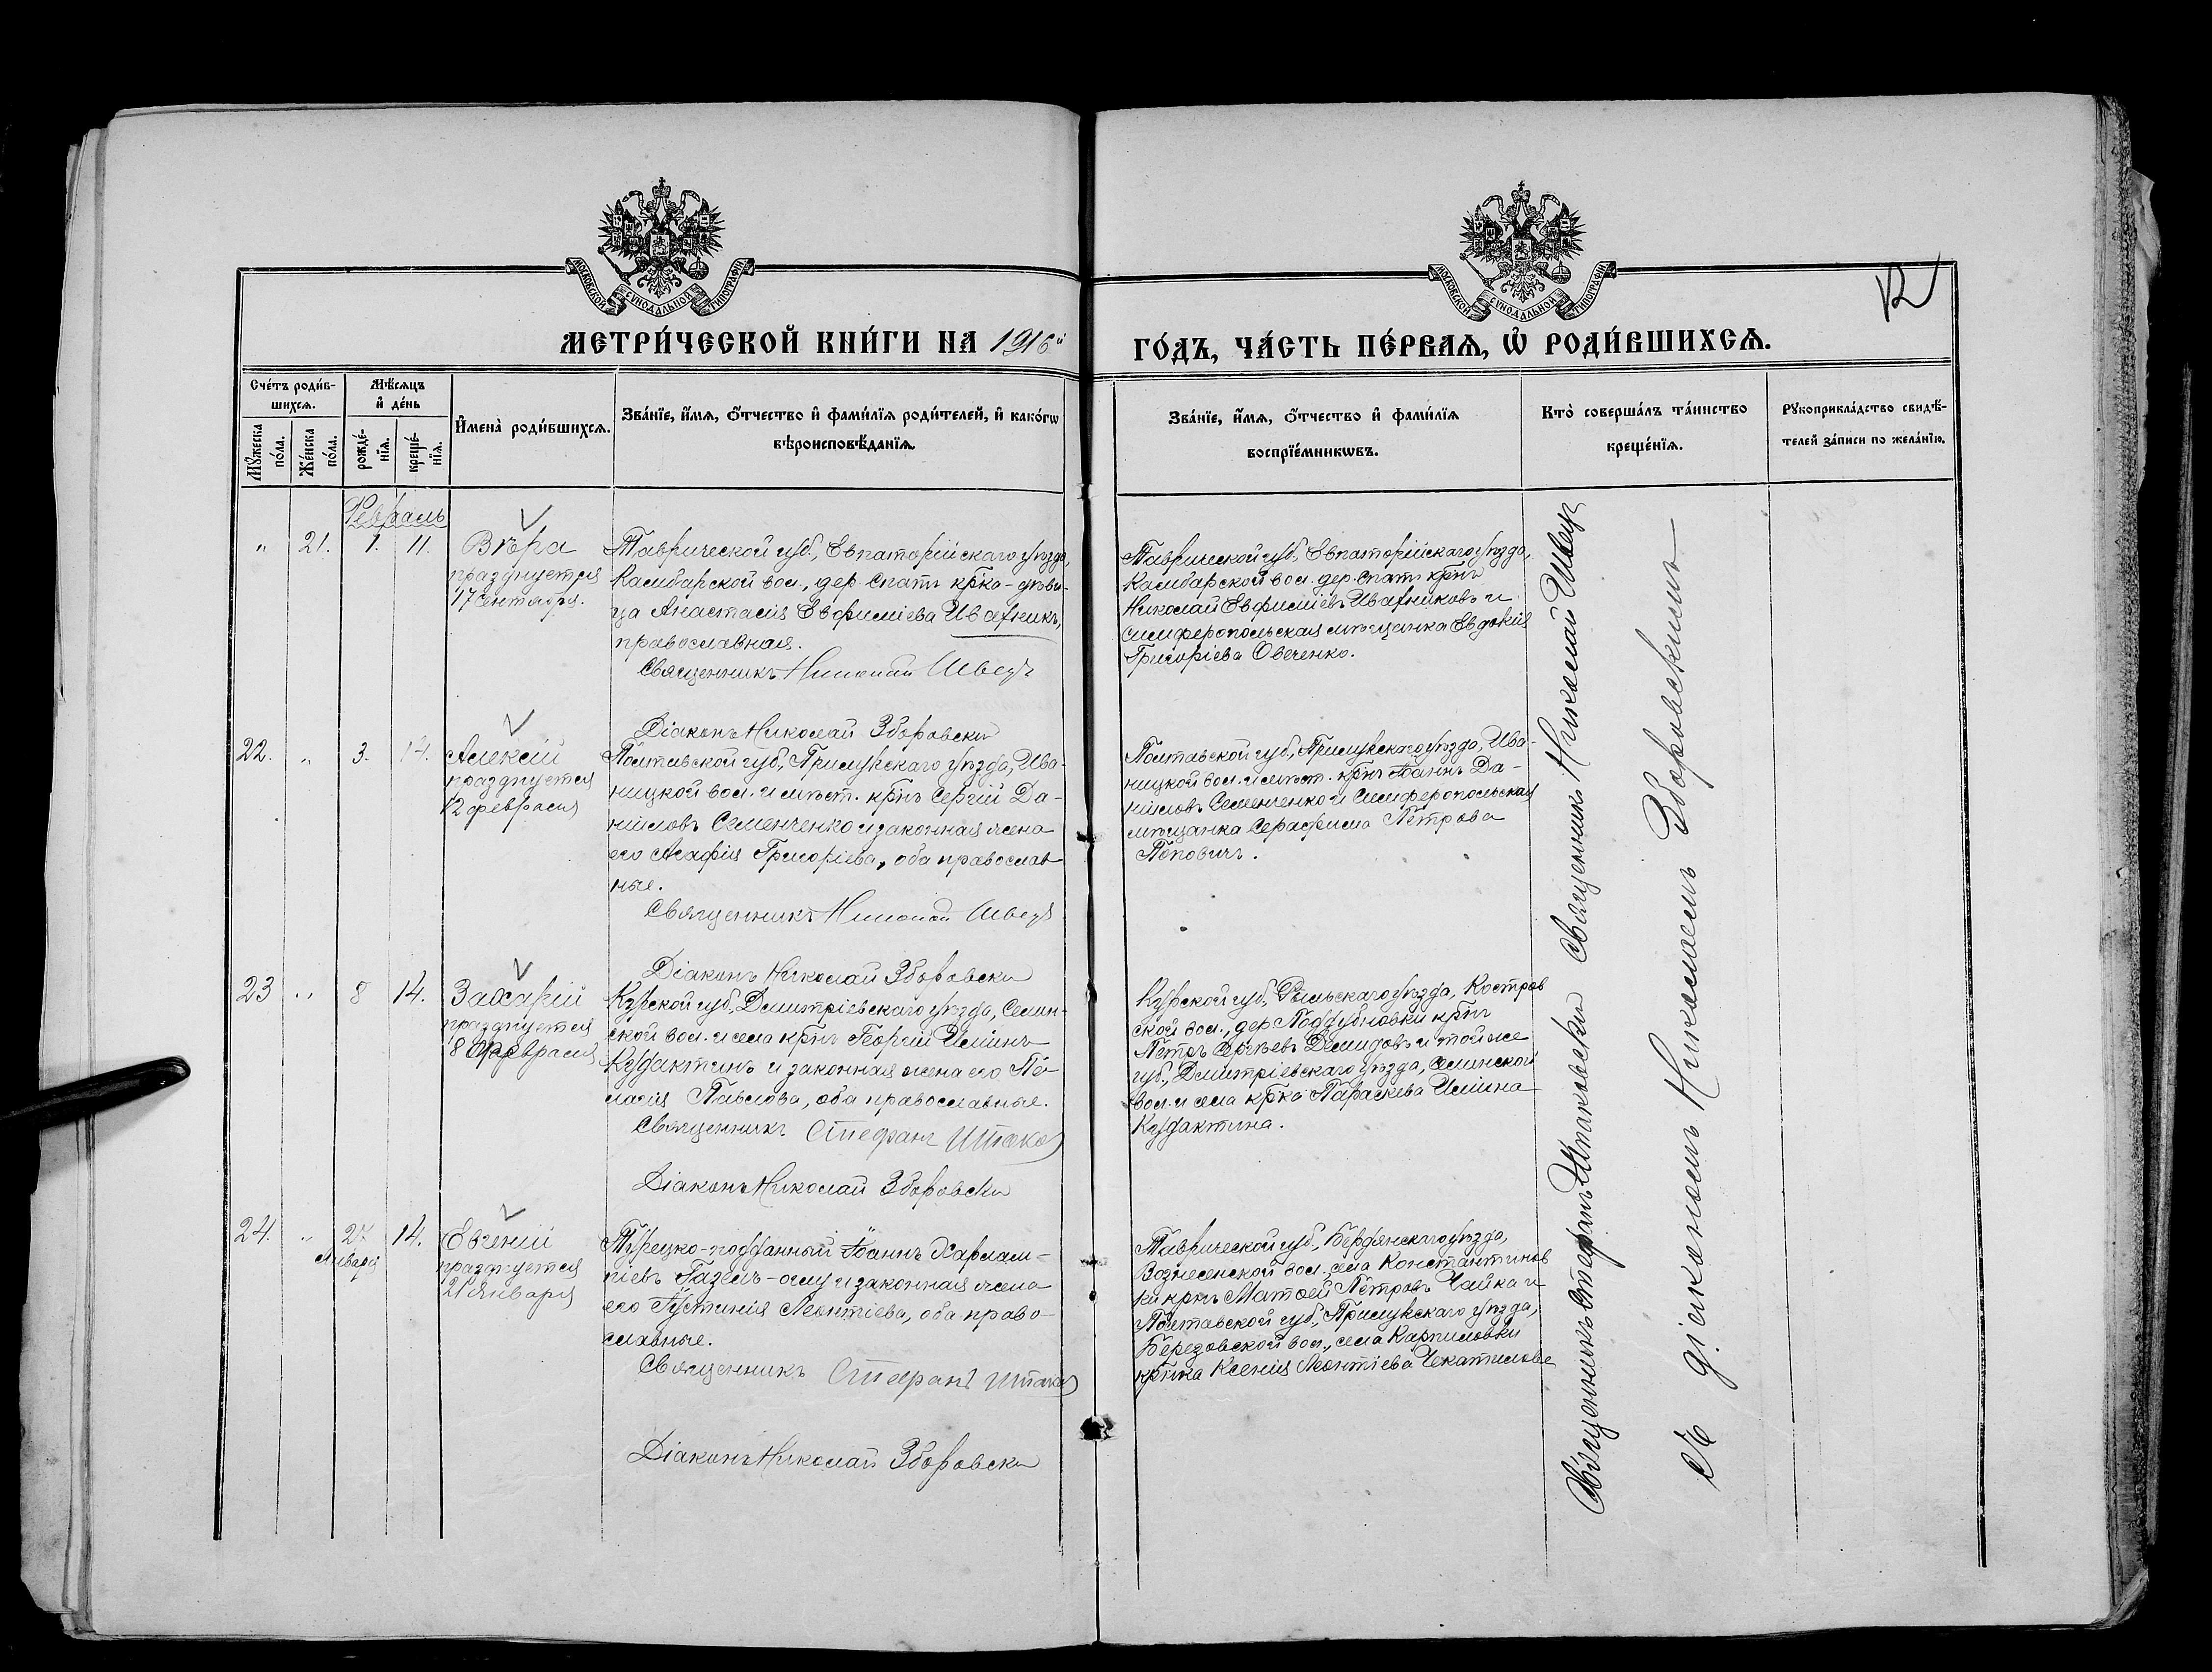 МОСКОВСКОЙ СѴНОДАЛЬНОЙ ТИПОГРАФІИ
МОСКОВСКОЙ СѴНОДАЛЬНОЙ ТИПОГРАФІИ
12
МЕТРИ́ЧЕСКОЙ КНИ́ГИ НА 1916й
ГО́ДЪ, ЧА́СТЬ ПЕ́РВАѦ, Ѡ҆ РОДИ́ВШИХСѦ.
Сче́тъ роди́в-
шихсѧ.
Мѣ́сѧцъ
и҆ де́нь
Му́жеска
по́ла.
Же́нска
по́ла.
рожде́-
нїѧ.
креще́-
нїѧ.
И҆мена̀ роди́вшихсѧ.
Зва́нїе, и҆́мѧ, ѻ҆́тчество и҆ фами́лїѧ роди́телей, и҆ како́гѡ
вѣроисповѣ́данїѧ.
Зва́нїе, и҆́мѧ, ѻ҆́тчество и҆ фами́лїѧ
воспрїе́мникѡвъ.
Кто̀ соверша́лъ та́инство
креще́нїѧ.
Рꙋкоприкла́дство свидѣ́-
телей за́писи по жела́нїю.
Февраль
" 21. 1. 11.
Вѣра
празднуется
17 Сентября.
Таврической губ., Евпаторійскаго уѣзда,
Камбарской вол., дер. Спатъ кр҃ка-дѣви-
ца Анастасія Евфиміева Иватникъ,
православная.
Священникъ Николай Швец
Діаконъ Николай Зборовски
Таврической губ., Евпаторійскаго уѣзда,
Камбарской вол. дер. Спатъ кр҃нъ
Николай Евфиміевъ Иватниковъ и
симферопольская мѣщанка Евдокія
Григоріева Овеченко.
22. " 3. 14.
Алексій
празднуется
12 февраля
Полтавской губ., Прилукскаго уѣзда, Ива-
ницкой вол. и мѣст. кр҃нъ Сергій Да-
ніиловъ Семенченко и законная жена
его Агафія Григоріева, оба православ-
ные.
Священникъ Николай Швец
Діаконъ Николай Зборовски
Полтавской губ., Прилукскаго уѣзда, Ива-
ницкой вол. и мѣст. кр҃нъ Іоаннъ Да-
ніиловъ Семенченко и Симферопольская
мѣщанка Серафима Петрова
Поповичъ.
23 " 8 14.
Захарій
празднуется
8 февраля
Курской губ., Дмитріевскаго уѣзда, Селин-
ской вол. и села кр҃нъ Георгій Иліинъ
Кудактинъ и законная жена его Пе-
лагія Павлова, оба православные.
Священникъ Стефанъ Шпако
Діаконъ Николай Зборовски
Курской губ., Рыльскаго уѣзда, Костров
ской вол., дер. Поддубновки кр҃нъ
Петръ Сергѣевъ Демидовъ и той же
губ., Дмитріевскаго уѣзда, Селинской
вол. и села кр҃ка Параскева Иліина
Кудактина.
24. " 27 14.
Января
Евгеній
празднуется
21 Января
Турецко-подданный Іоаннъ Харлам-
піевъ Газелъ-оглу и законная жена
его Іустинія Леонтіева, оба право-
славные.
Священникъ Стефанъ Шпако
Діаконъ Николай Зборовски
Таврической губ., Бердянскаго уѣзда,
Вознесенской вол. села Константинов
ки кр҃нъ Матѳей Петровъ Чайка и
Полтавской губ., Прилукскаго уѣзда,
Березовской вол., села Карпиловки
кр҃нка Ксенія Леонтіева Чекатилове
Священникъ Стефанъ Шпаковски Священникъ Николай Швец
съ діакономъ Николаемъ Зборовскимъ